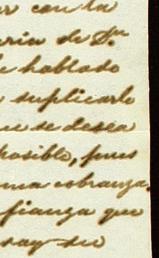 con la
aria de Sn
hablado
suplicarle
que se desea
posible, pues
una cobranza
fianza que
say su